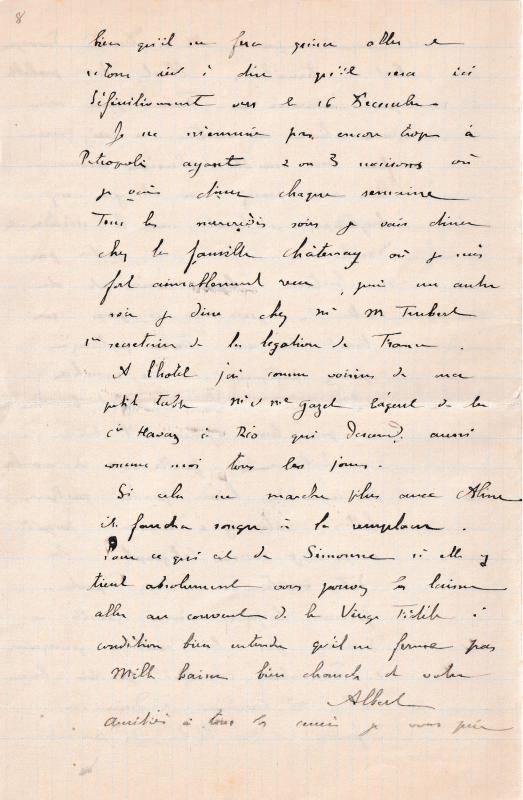 8
bien qu'il ne fera qu'aller et
retour c'est à dire qu'il sera ici
définitivement vers le 16 Décembre
Je ne m'ennuie pas encore trop à
Petropolis ayant 2 ou 3 maisons où
je vais dîner chaque semaine
Tous les mercredis soirs je vais diner
chez la famille Châtenay où je suis
fort aimablement reçu, puis un autre
soir je dine chez Mr Trubert
1er secretaire de la legation de France.
A l'hotel j'ai comme voisins de ma
petite table Mr et Mme Gazet l'agent de la
Cie Havas à Rio qui descend aussi
comme moi tous les jours.
Si cela ne marche plus avec Aline
il faudra songer à la remplacer.
Pour ce qui est de Simonne si elle y
tient absolument vous pouvez la laisser
aller au couvent de la Vierge Fidèle à
condition bien entendu qu'il ne ferme pas
Mille baisers bien chauds de votre
Albert
Amitiés à tous les je vous prie